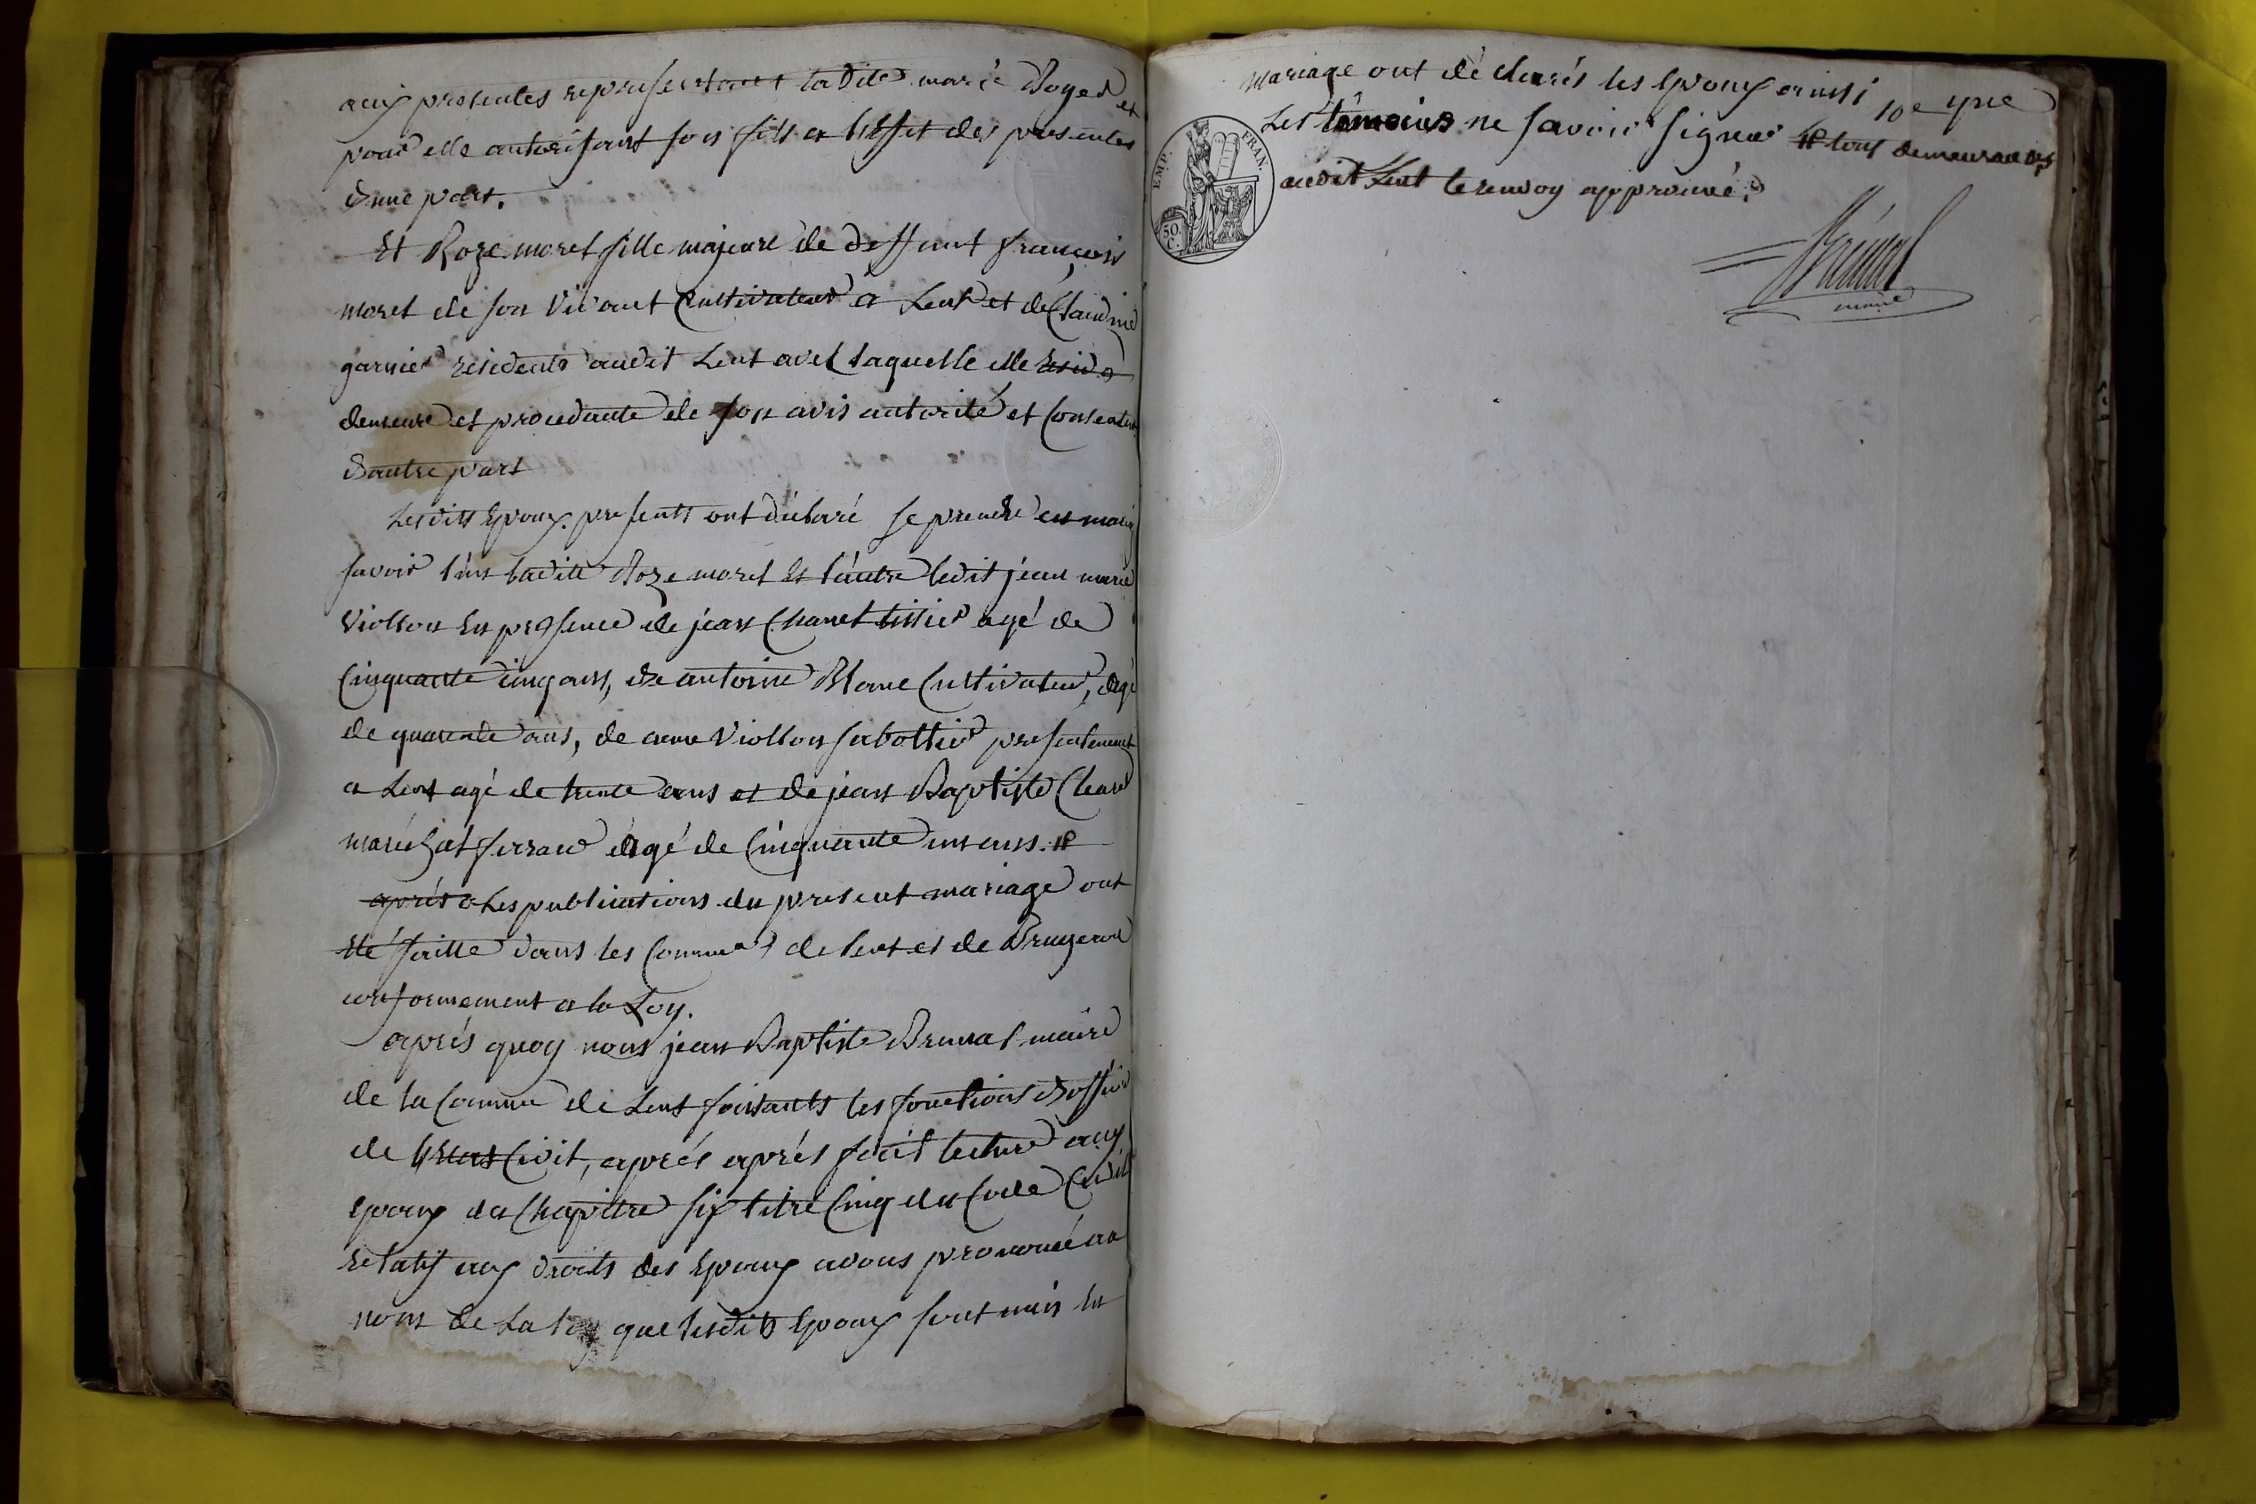 aux presentes representant ladite marie Royer et
pour elle autorisant son fils a l'effet des presentes
d'une part.
Et Roze moret fille majeure de deffunt françois
moret de son vivant Cultivateur a Lent et de Claudine
garnier residente audit Lent avec laquelle elle
demeure et procedante de son avis autorité et Consentem
d'autre part
Lesdits Epoux presents ont déclaré se prendre en mariage
savoir l'un ladite Roze moret Et l'autre ledit jean marie
Viollon En presence de jean Chanel tissier agé de
Cinquante cinq ans, de antoine Blanc Cultivateur, agé
de quarante ans, de Viollon sabottier presentement
a Lent agé de trente ans et de jean Baptiste
maréchal ferran agé de Cinquante un ans. #
après a Les publications du present mariage ont
Eté faitte dans les Commune de Lent et de
conformement a la Loy.
après quoy nous jean Baptiste Brunat maire
de la Commune de Lent faissants les fonctions d'officier
de l'Etat Civil, après après fait lecture aux
Epoux du Chapitre six titre Cinq du Code Civil
relatif aux droits des Epoux avons prononcé au
nom de La loy que lesdits Epoux sont unis En
mariage ont déclarés les Epoux ainsi que
Les témoins ne savoir signer # tous demeurant
audit Lent le renvoy approuvé.
EMP. FRAN.
50. C.
Brunat
maire